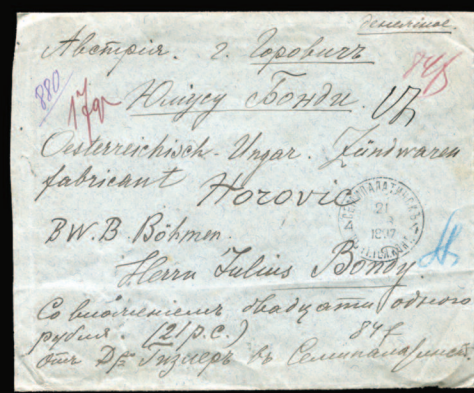 денежное.
Австрія. г. Горовичъ
880
17gr
84
Юліусу Бонди.
Oesterreichisch-Ungar. Zündwaren
fabricant Horovic
СЕМИПАЛАТИНСКЪ
21
1897
B.W.B. Böhmen.
Herrn Julius Bondy.
Со вложеніемъ двадцати одного
рубля. (21 р.с.) 84
отъ Гизлеръ въ Семипалатинскѣ.